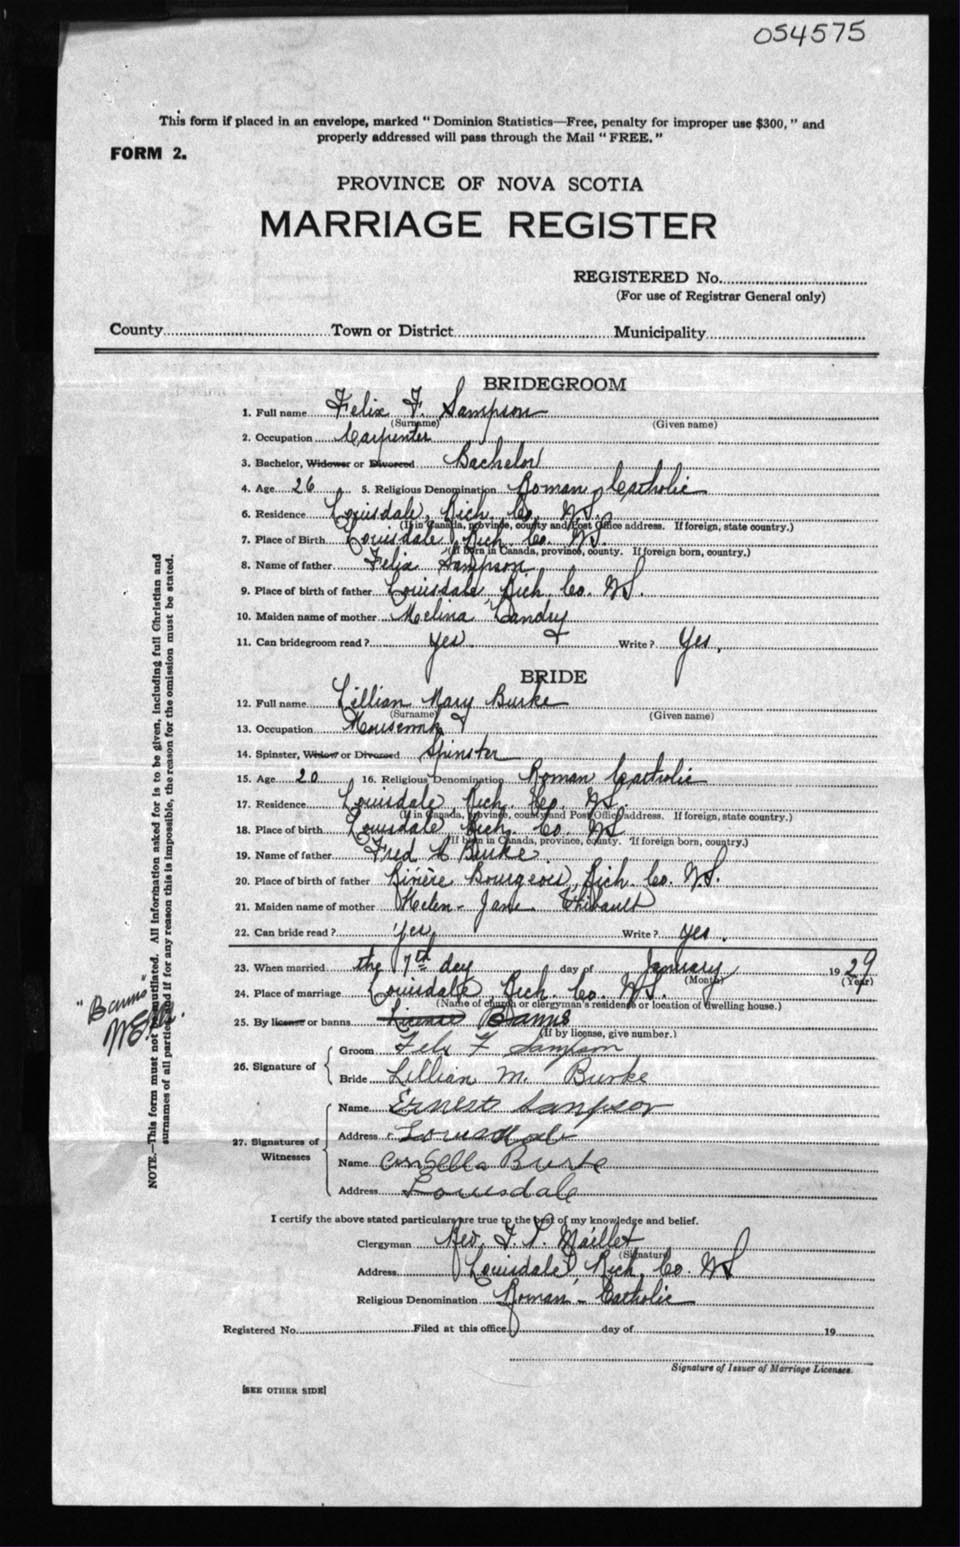 054575
This form if placed in an envelope, marked "Dominion Statistics—Free, penalty for improper use $300," and
properly addressed will pass through the Mail "FREE."
FORM 2.
PROVINCE OF NOVA SCOTIA
MARRIAGE REGISTER
REGISTERED No.
(For use of Registrar General only)
County Town or District Municipality
BRIDEGROOM
1. Full name Felix F. Sampson
(Surname) (Given name)
2. Occupation Carpenter
3. Bachelor, Widower or Divorced Bachelor
4. Age 26 5. Religious Denomination Roman Catholic
6. Residence Louisdale, Rich. Co. N.S.
(If in Canada, province, county and Post Office address. If foreign, state country.)
7. Place of Birth Louisdale, Rich. Co. N.S.
(If born in Canada, province, county. If foreign born, country.)
8. Name of father Felix Sampson
9. Place of birth of father Louisdale, Rich. Co. N.S.
10. Maiden name of mother Melina Landry
11. Can bridegroom read? yes. Write? Yes.
BRIDE
12. Full name Lillian Mary Burke
(Surname) (Given name)
13. Occupation
14. Spinster, Widow or Divorced Spinster
15. Age 20 16. Religious Denomination Roman Catholic
17. Residence Louisdale, Rich. Co. N.S.
(If in Canada, province, county and Post Office address. If foreign, state country.)
18. Place of birth Louisdale, Rich. Co. N.S.
(If born in Canada, province, county. If foreign born, country.)
19. Name of father Fred Burke
20. Place of birth of father Rivière Bourgeois, Rich. Co. N.S.
21. Maiden name of mother Helen - Jane Thibault
22. Can bride read? yes Write? yes.
23. When married the 7th day day of January 1929
(Month) (Year)
24. Place of marriage Louisdale, Rich. Co. N.S.
(Name of church or clergyman's residence or location of dwelling house.)
25. By license or banns License Banns
(If by license, give number.)
26. Signature of
Groom Felix F Sampson
Bride Lillian M. Burke
27. Signatures of Witnesses
Name Ernest Sampson
Address Louisdale
Name Burke
Address Louisdale
I certify the above stated particulars are true to the best of my knowledge and belief.
Clergyman Rev. Maillet
(Signature)
Address Louisdale, Rich. Co. N.S.
Religious Denomination Roman - Catholic
Registered No. Filed at this office day of 19
Signature of Issuer of Marriage Licenses.
[SEE OTHER SIDE]
NOTE.—This form must not be mutilated. All information asked for is to be given, including full Christian and
surnames of all parties, and if for any reason this is impossible, the reason for the omission must be stated.
"Banns"